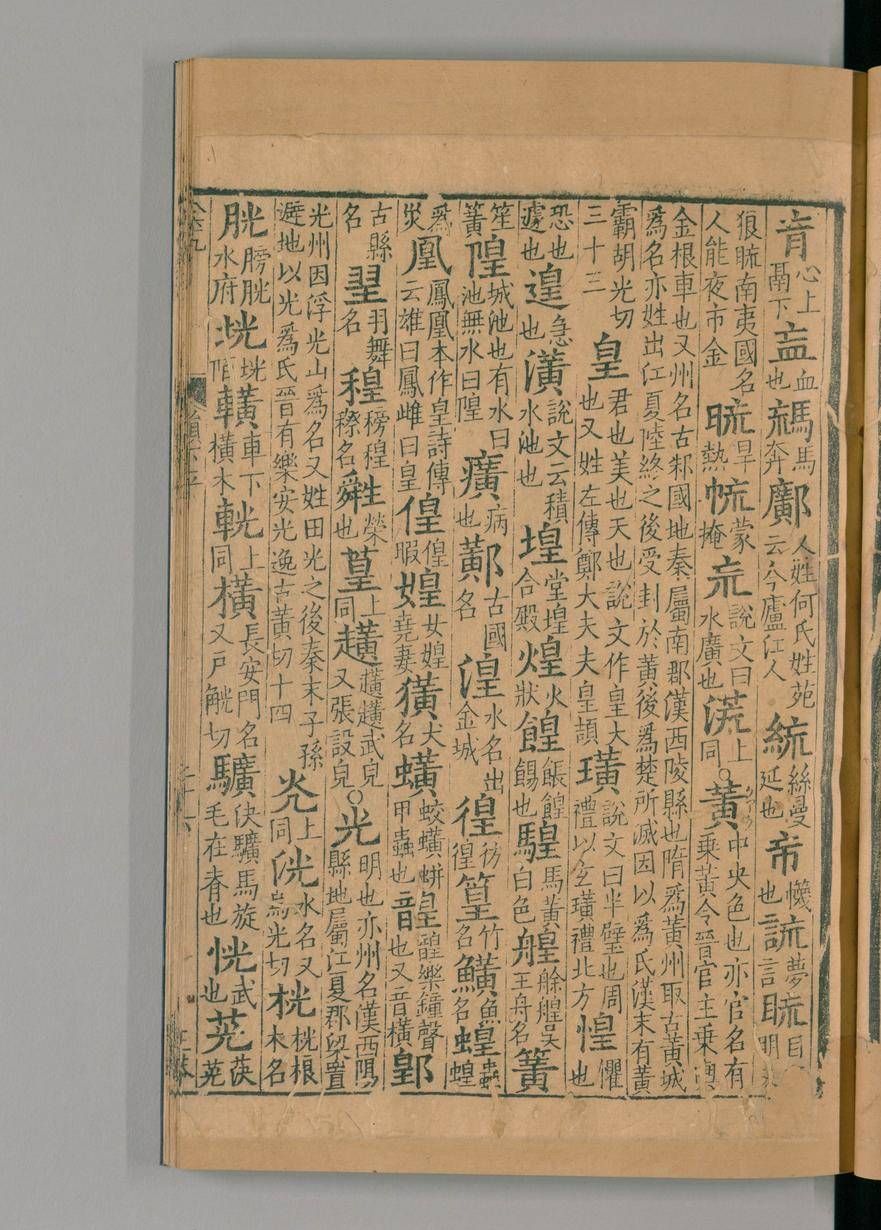 肓心上鬲下衁血也𩢯馬奔鄺人姓何氏姓苑云今廬江人統絲曼延也㠩幭也詤夢言䀮目
狼䀮南夷國名人能夜市金㫰旱熱㡃蒙掩巟說文曰水廣也㳹上同○黃中央色也亦官名有乘黃令晉官主乘輿
金根車也又州名古邾國地秦屬南郡漢西陵縣也隋爲黃州取古黃城爲名亦姓出江夏陸終之後受封於黃後爲楚所滅因以爲氏漢末有黃
霸胡光切三十三皇君也美也天也說文作皇大也又姓左傳鄭大夫夫皇頡璜說文曰半璧也周禮以玄璜禮北方惶懼也
恐也遽也遑急也潢說文云積水池也堭堂堭合殿煌火狀餭餦餭餳也騜馬黃白色艎艅艎吳王舟名簧
笙簧隍城池也有水曰池無水曰隍癀病也䣣古國名湟水名出金城徨彷徨篁竹名鱑魚名蝗蟲蝗
爲災凰鳳凰本作皇詩傳云雄曰鳳雌曰皇偟偟暇媓女媓堯妻獚犬名蟥蛟蟥蛢甲蟲也韹韹樂鐘聲也又音橫鄓
古縣名翌羽舞名程稖程穄名䑟榮也葟上同趪趪趪武皃又張設皃○光明也亦州名漢西陽縣地屬江夏郡梁置
光州因浮光山爲名又姓田光之後秦末子孫避地以光爲氏晉有樂安光逸古黃切十四炗上同洸水名又烏光切桄桄根木名
胱膀胱水府垙垙陌䡽車下橫木䡉上同橫長安門名又戶觥切驥駃驥馬旋毛在脊也恍武也茪䒷茪